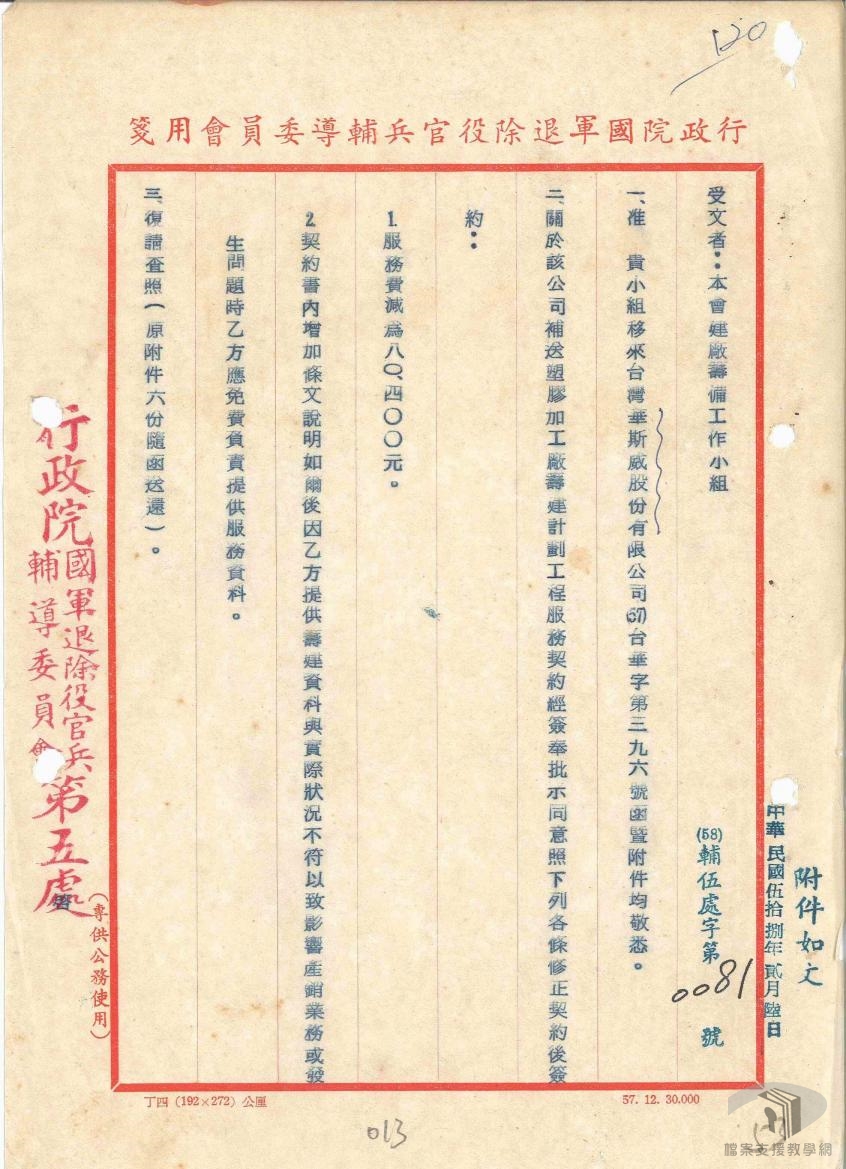 120
行政院國軍退除役官兵輔導委員會用箋
附件如文
中華民國伍拾捌年貳月陸日
(58)輔伍處字第0081號
受文者：本會建廠籌備工作小組
一、准　貴小組移來台灣華斯威股份有限公司(57)台華字第三九六號函暨附件均敬悉。
二、關於該公司補送塑膠加工廠籌建計劃工程服務契約經簽奉批示同意照下列各條修正契約後簽
約：
1.服務費減為八〇、四〇〇元。
2.契約書內增加條文說明如爾後因乙方提供籌建資料與實際狀況不符以致影響產銷業務或發
生問題時乙方應免費負責提供服務資料。
三、復請查照（原附件六份隨函送還）。
行政院國軍退除役官兵輔導委員會第五處啓
（專供公務使用）
丁四 (192×272) 公厘
57. 12. 30.000
013
檔案支援教學網